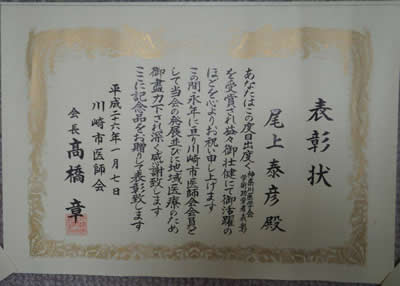 表彰状
尾上泰彦殿
あなたはこの度目出度く神奈川医学会学術功労者表彰
を受賞され益々御壮健にて御活躍の
ほどを心よりお祝い申し上げます
この間永年に亘り川崎市医師会会員と
して当会の発展並びに地域医療のため
御盡力下され深く感謝致します
ここに記念品をお贈りして表彰致します
平成二十六年一月七日
川崎市医師会
会長 髙橋章